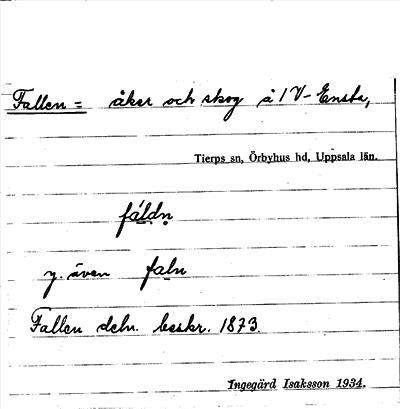 Fallen = åker och skog å 1 V- Ensta,
Tierps sn, Örbyhus hd, Uppsala län.
fáldn
y. även faln
Fallen deln. beskr. 1873
Ingegärd Isaksson 1934.